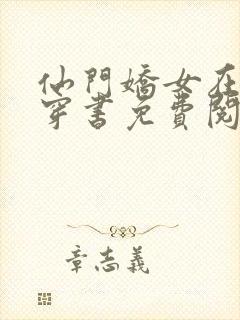 仙門嬌女在
穿書免費閱
章志義